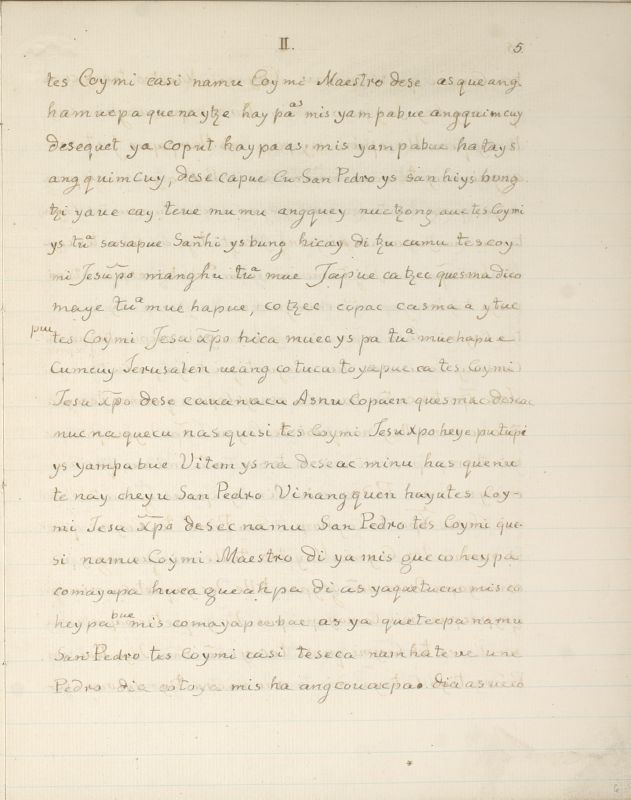 II.
5
tes Coymi casi namu Coymi Maestro dese asqueang
hamuepa quenaytze haypa as mis yampabue angquimcuy
desequet ya coput haypa as mis yampabue hatays
angquimcuy, dese capue Cu San Pedro ys san hiys bung
tzi yave cay teue mumu angquey nuctzong aue tes Coymi
ys tuª sasapue Sañhi ys bung hicay di tzu cumu tes coy
mi Jesuxpo manghu tuª mue Japue ca tzec quesma dico
maye tuª mue hapue, co tzec copac casma a ytuc
pue tes Coymi Jesu xpo hica muec ys pa tuª muehapue
Cumcuy Jerusalen ueang cotucu toyapue ca tes Coymi
Jesu xpo dese cauanacu Asnu Copaen quesmac deseac
nuc na quecu nasquisi tes Coymi Jesu xpo heye putupi
ys yampabue Vitem ys na deseac minu has quenu
te nay cheyu San Pedro Vinangquen hayutes Coy-
mi Jesu xpo desec namu San Pedro tes Coymi que-
si namu Coymi Maestro di ya mis gueco heypa
comayapa hueca gueahpa di as yaquetucu mis co
heypa bue mis comayapeubae as ya queteepa namu
San Pedro tes Coymi casi teseca namhate ve une
Pedro dia cotoya mis ha angcouacpa. dia as